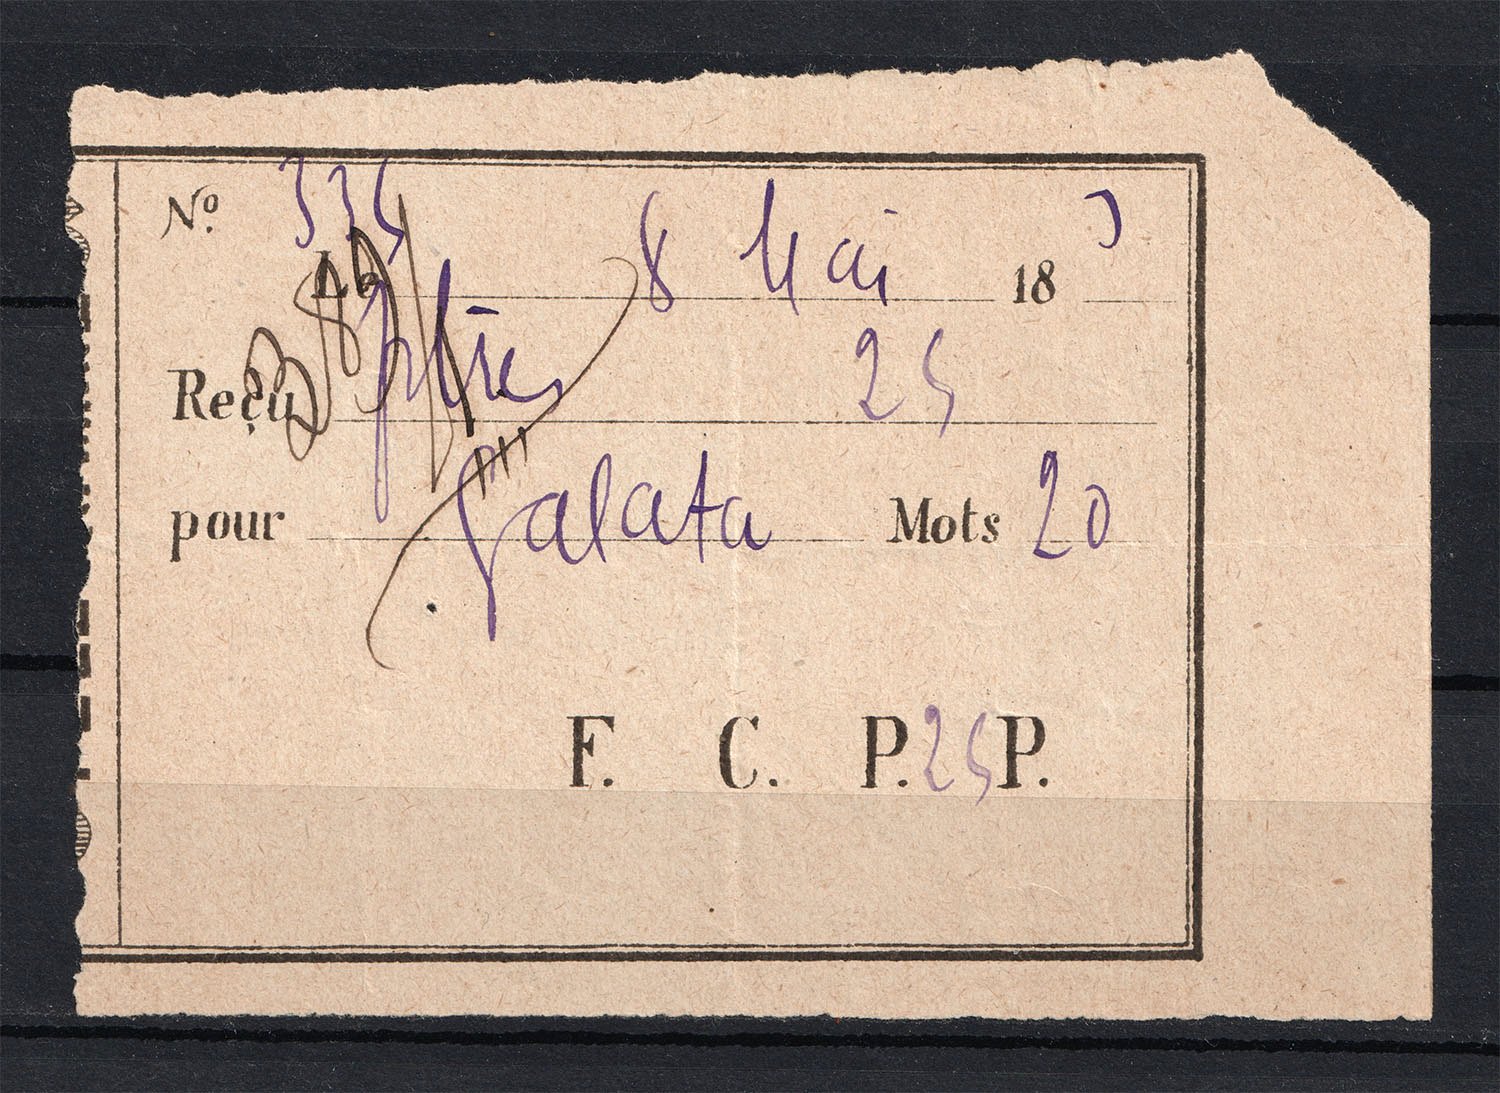 Nº 335
Le 8 Mai 18 9
Reçu ptres 25
pour Galata Mots 20
F. C. P. 25 P.